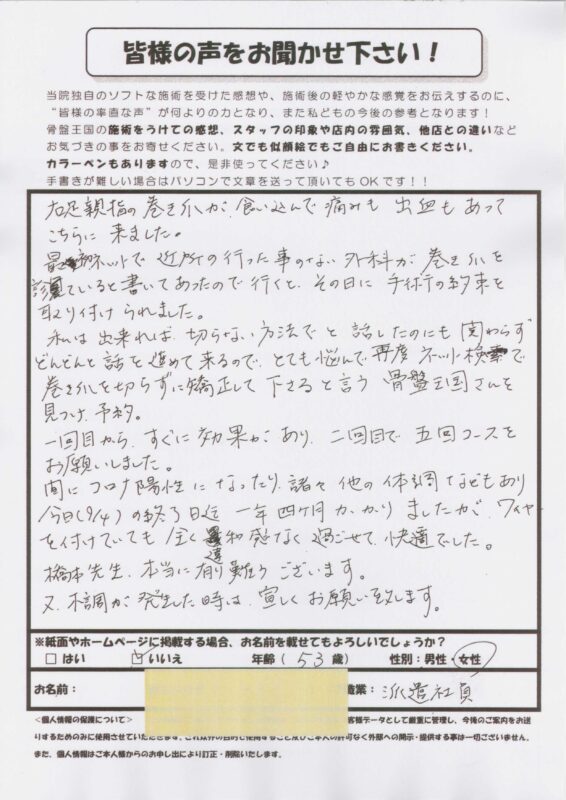 皆様の声をお聞かせ下さい！
当院独自のソフトな施術を受けた感想や、施術後の軽やかな感覚をお伝えするのに、
“皆様の率直な声”が何よりの力となり、また私どもの今後の参考となります！
骨盤王国の施術をうけての感想、スタッフの印象や店内の雰囲気、他店との違いなど
お気づきの事をお寄せください。文でも似顔絵でもご自由にお書きください。
カラーペンもありますので、是非使ってください♪
手書きが難しい場合はパソコンで文章を送って頂いてもOKです！！
右足親指の巻き爪が、食い込んで痛みも出血もあって
こちらに来ました。
最初ネットで近所の行った事のない外科が巻き爪を
診ていると書いてあったので行くと、その日に手術の約束を
取り付けられました。
私は出来れば切らない方法でと話したのにも関わらず
どんどんと話を進めて来るので、とても悩んで再度ネット検索で
巻き爪を切らずに矯正して下さると言う骨盤王国さんを
見つけ、予約。
一回目から、すぐに効果があり、二回目で五回コースを
お願いしました。
間にコロナ陽性になったり、諸々他の体調などもあり
今日(9/4)の終了日迄一年四ヶ月かかりましたが、ワイヤー
を付けていても全く違和感なく過ごせて、快適でした。
橋本先生、本当に有り難うございます。
又、不調が発生した時は、宜しくお願い致します。
※紙面やホームページに掲載する場合、お名前を載せてもよろしいでしょうか？
□ はい ☑ いいえ 年齢（ 53 歳） 性別：男性・女性
お名前： 業：派遣社員
＜個人情報の保護について＞ 客様データとして厳重に管理し、今後のご案内をお送
りするためのみに使用させていただきます。これ以外の目的で使用すること及びご本人の許可なく外部への開示・提供する事は一切ございません。
また、個人情報はご本人様からのお申し出により訂正・削除いたします。